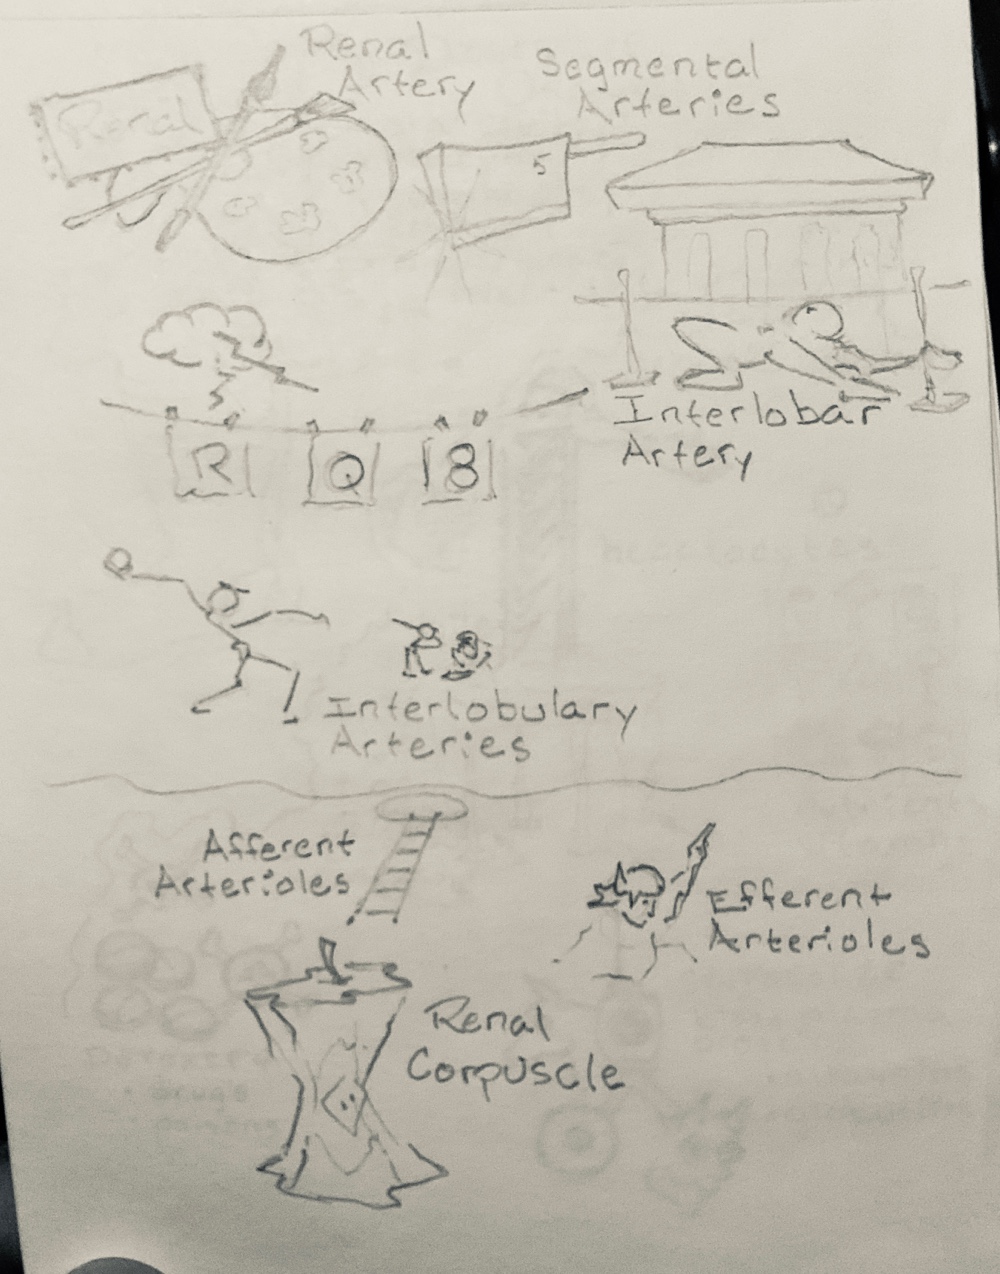 Renal
Renal
Artery
Segmental
Arteries
5
Interlobar
Artery
R Q 8
Interlobulary
Arteries
Afferent
Arterioles
Efferent
Arterioles
Renal
Corpuscle